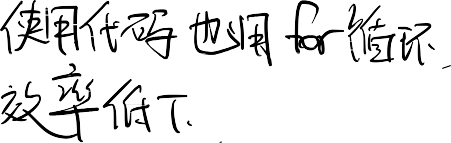 使用代码也用for循环，
效率低下.